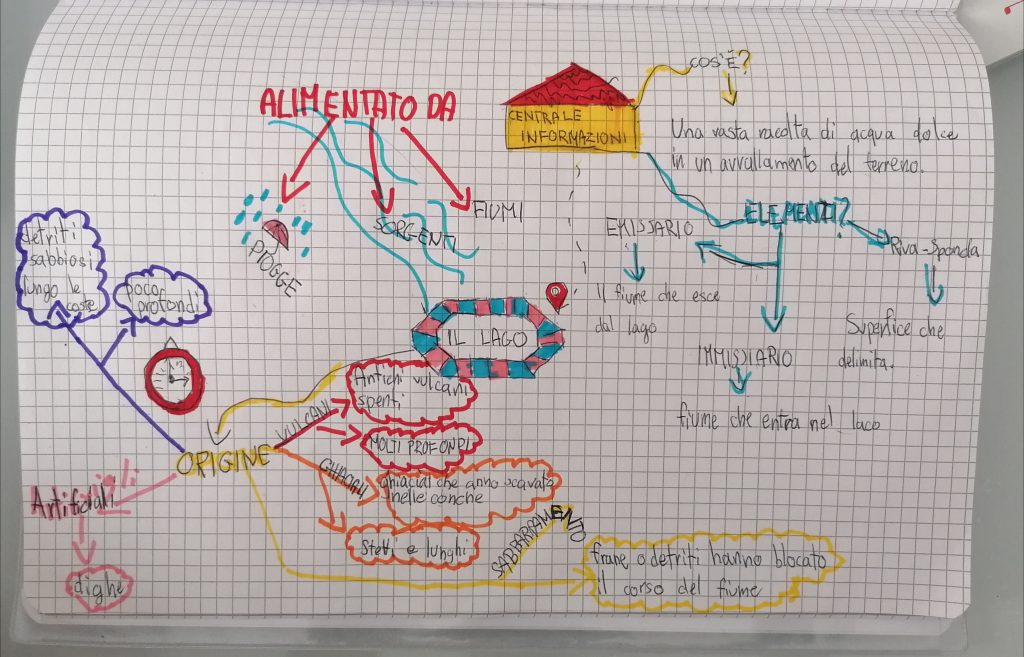 COS'È?
ALIMENTATO DA
CENTRALE
INFORMAZIONI
Una vasta racolta di acqua dolce
in un avvallamento del terreno.
PIOGGE
SORGENTI
FIUMI
ELEMENTI?
EMISSARIO
Riva-Sponda
Il fiume che esce
dal lago
Superfice che
delimita.
IMMISSIARIO
fiume che entra nel laco
IL LAGO
detriti
sabbiosi
lungo le
coste
poco
profondi
ORIGINE
VULCANI
Antichi vulcani
spenti
MOLTI PROFONDI
ghiaciai che anno scavato
nelle conche
stetti e lunghi
Artificiali
dighe
SABBARRAMENTO
frane o detriti hanno blocato
il corso del fiume